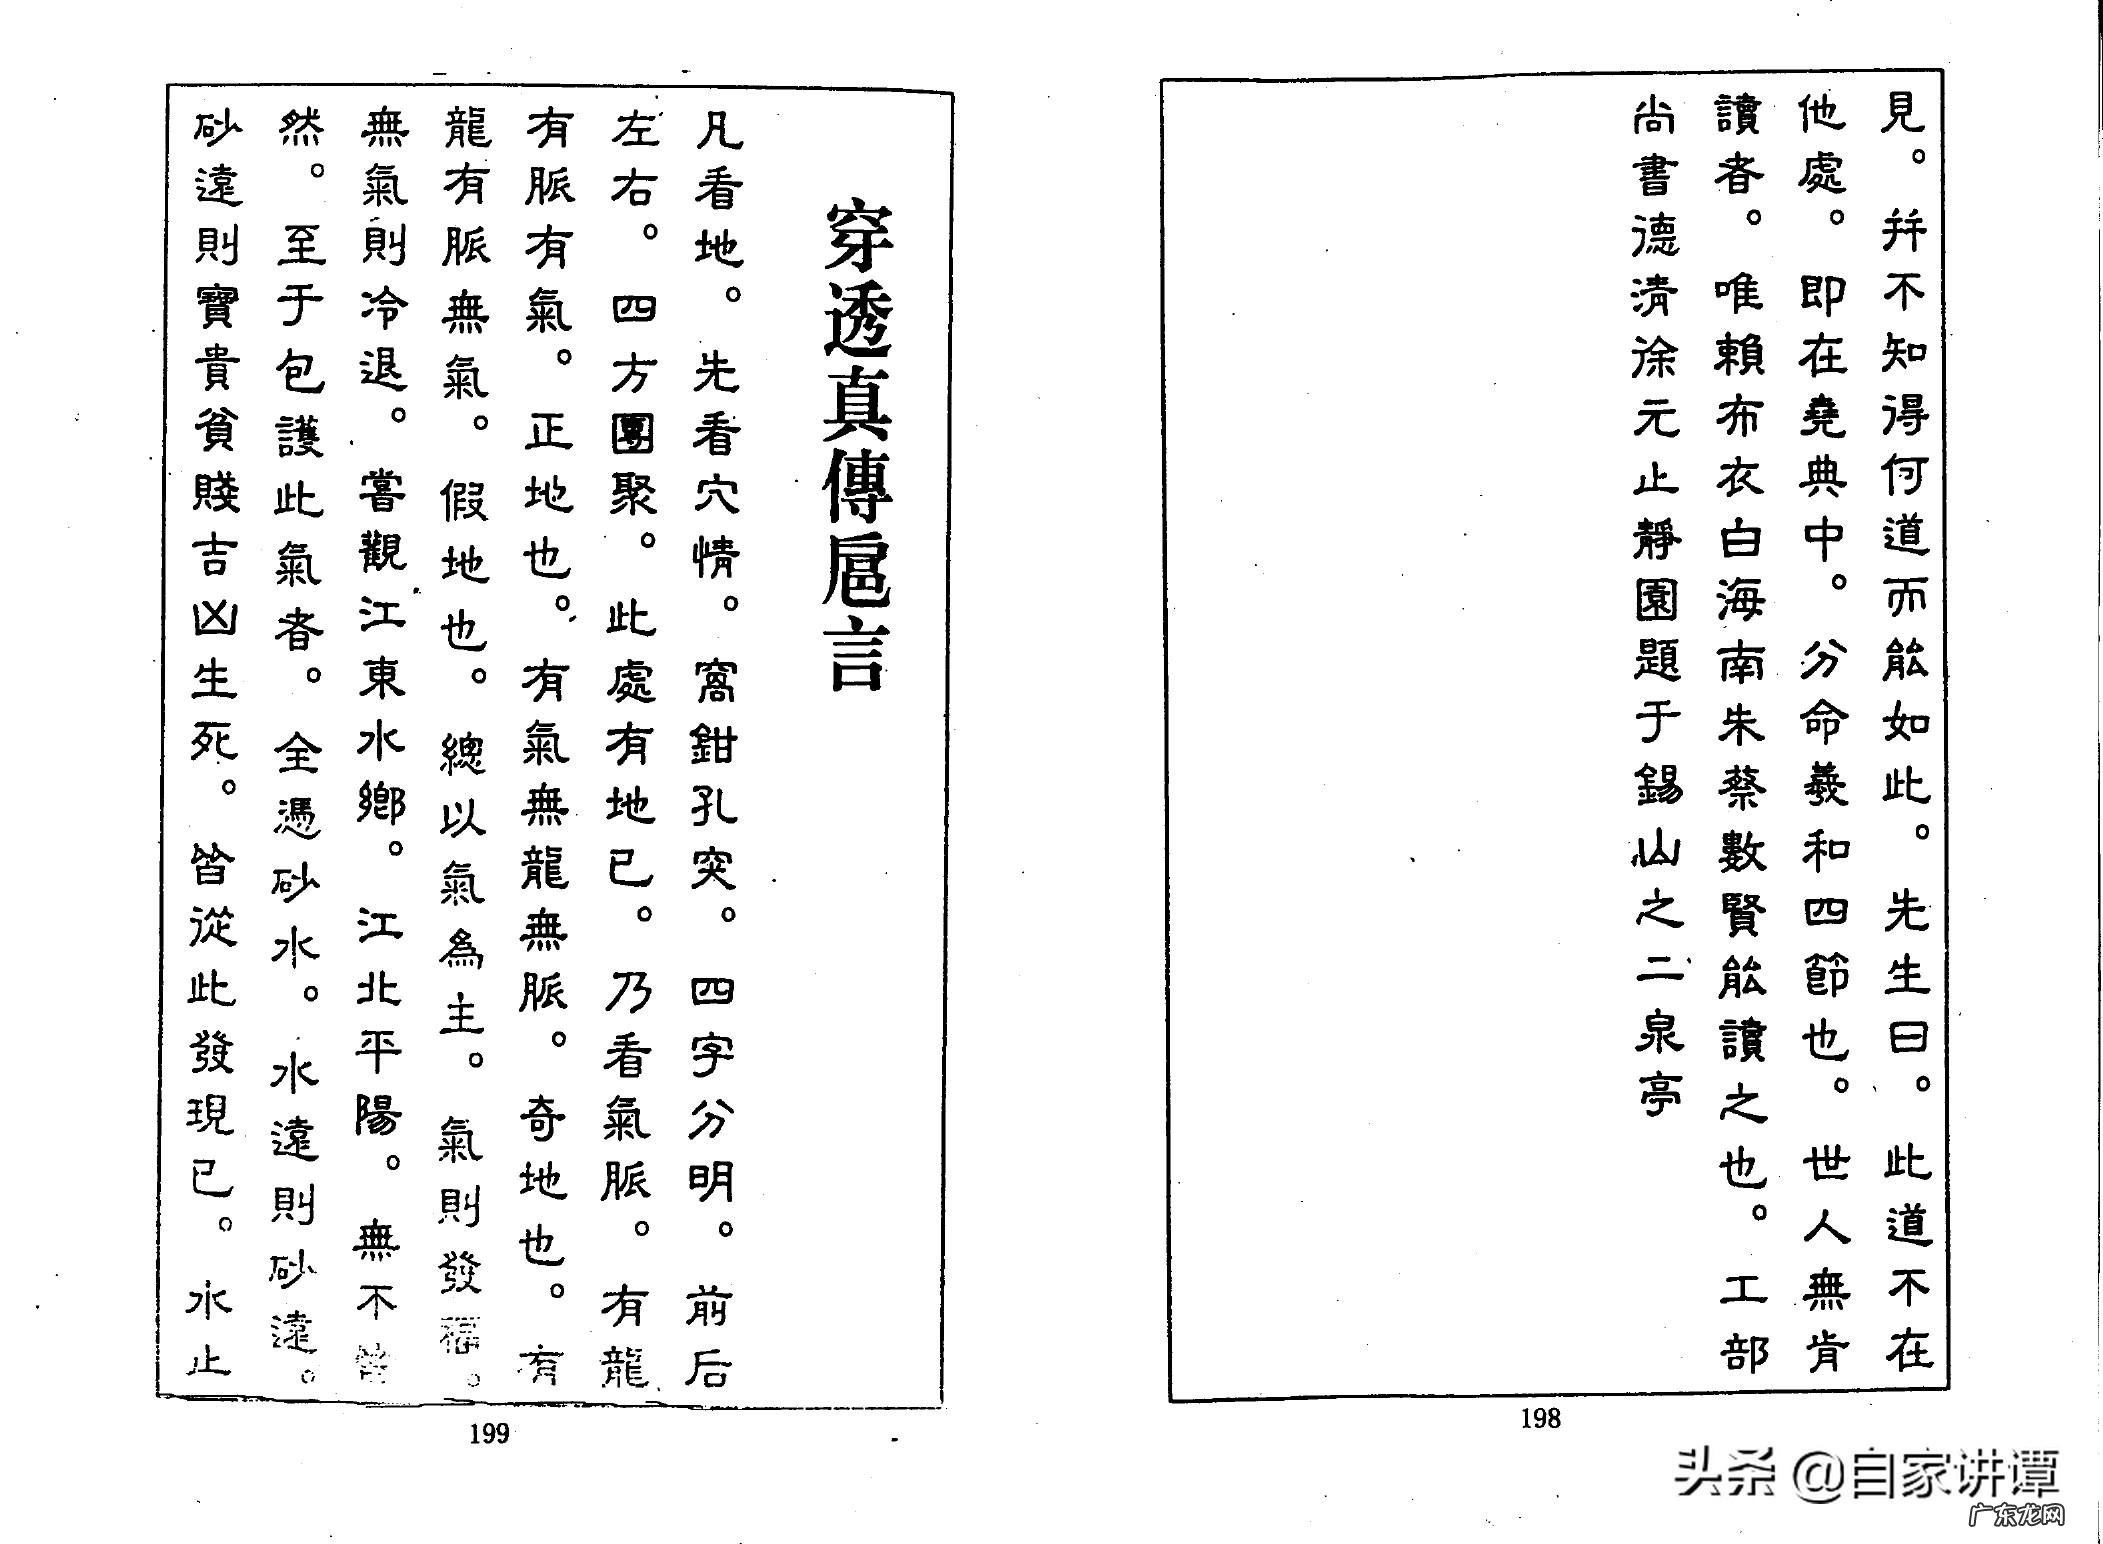 見。并不知得何道而能如此。先生曰。此道不在
他處。即在堯典中。分命羲和四節也。世人無肯
讀者。唯賴布衣白海南朱蔡數賢能讀之也。工部
尚書德清徐元止靜園題于錫山之二泉亭
198
穿透真傳巵言
凡看地。先看穴情。窩鉗孔突。四字分明。前后
左右。四方團聚。此處有地已。乃看氣脈。有龍
有脈有氣。正地也。有氣無龍無脈。奇地也。有
龍有脈無氣。假地也。總以氣為主。氣則發福。
無氣則冷退。嘗觀江東水鄉。江北平陽。無不皆
然。至于包護此氣者。全憑砂水。水遠則砂遠。
砂遠則寶貴貧賤吉凶生死。皆從此發現已。水止
199
头条 @自家讲谭
广东龙网